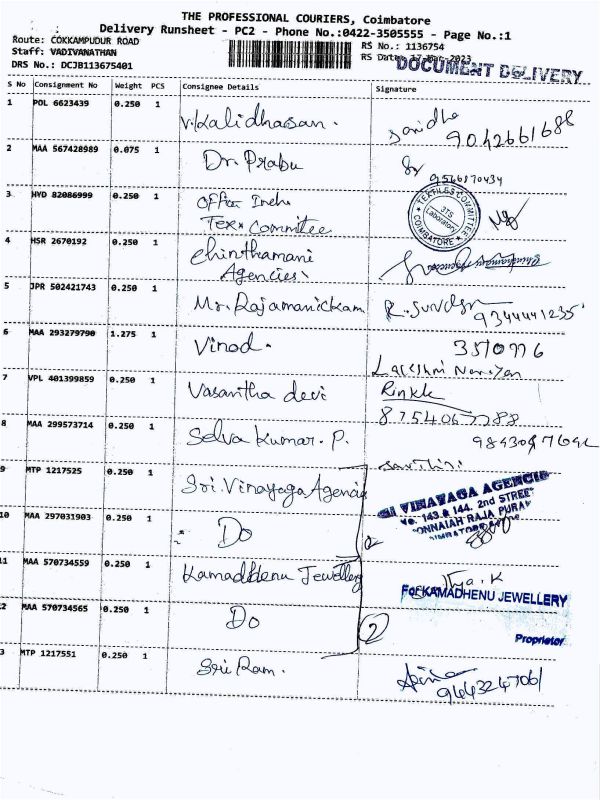 THE PROFESSIONAL COURIERS, Coimbatore
Delivery Runsheet - PC2 - Phone No.:0422-3505555 - Page No.:1
Route: COKKAMPUDUR ROAD
RS No.: 1136754
Staff: VADIVANATHAN
RS Date: 17-Mar-2023
DRS No.: DCJB113675401
DOCUMENT DELIVERY
S No Consignment No Weight PCS Consignee Details Signature
1 POL 6623439 0.250 1 V.Kalidhasan.
9042661688
2 MAA 567428989 0.075 1 Dr. Prabu
9566170434
3 HYD 82086999 0.250 1 Office Inch
Tex. Committee
TEXTILES COMMITTEE
Laboratory
COIMBATORE
4 HSR 2670192 0.250 1 Chinthamani
Agencies.
5 JPR 502421743 0.250 1 Mr. Rajamanickam
6 MAA 293279790 1.275 1 Vinod.
Lakshmi Narayan
7 VPL 401399859 0.250 1 Vasantha devi Rinkle
8754067788
8 MAA 299573714 0.250 1 Selva Kumar. P.
9 MTP 1217525 0.250 1 Sri. Vinayaga Agencies
VINAYAGA AGENCIES
No. 143 & 144, 2nd STREET
PONNAIAH RAJA PURAM
COIMBATORE
10 MAA 297031903 0.250 1 Do 2
11 MAA 570734559 0.250 1 Kamadhenu Jewellery
For KAMADHENU JEWELLERY
12 MAA 570734565 0.250 1 Do 2
Proprietor
13 MTP 1217551 0.250 1 Sri Ram.
9443247061